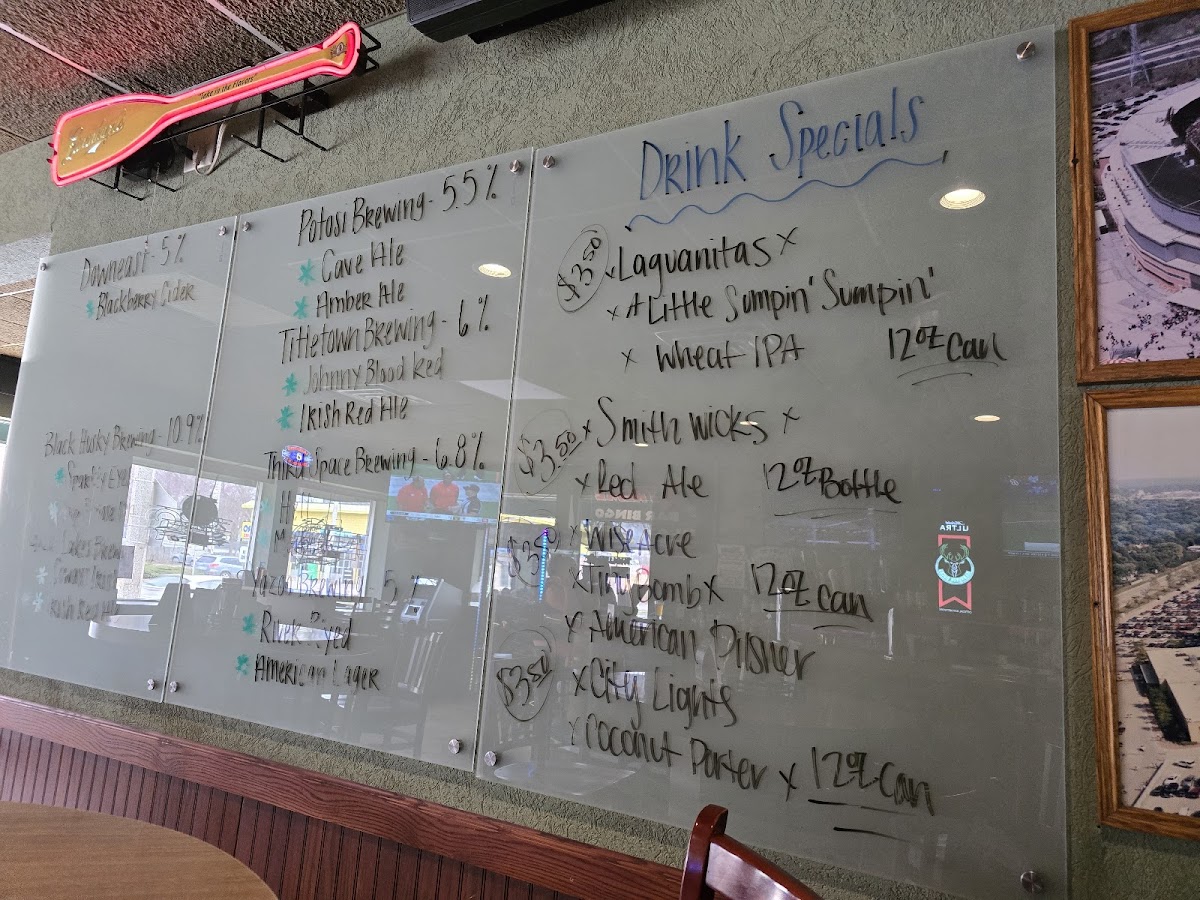 Leinenkugel's
"Join us in the Flavors"
Downeast - 5%
* Blackberry Cider
Black Husky Brewing - 10.9%
* Sparkly Eye
Irish Red Ale
Potosi Brewing - 5.5%
* Cave Ale
* Amber Ale
Titletown Brewing - 6%
* Johnny Blood Red
* Irish Red Ale
Third Space Brewing - 6.8%
Brewing 5
* River Ryed
* American Lager
Drink Specials
$3.50 x Laguanitas x
x A Little Sumpin' Sumpin'
x Wheat IPA 12oz Can
$3.50 x Smithwicks x
x Red Ale 12oz Bottle
x Wiseacre
x Tiny Bomb x 12oz Can
x American Pilsner
$3.50 x City Lights
x Coconut Porter x 12oz Can
ULTRA